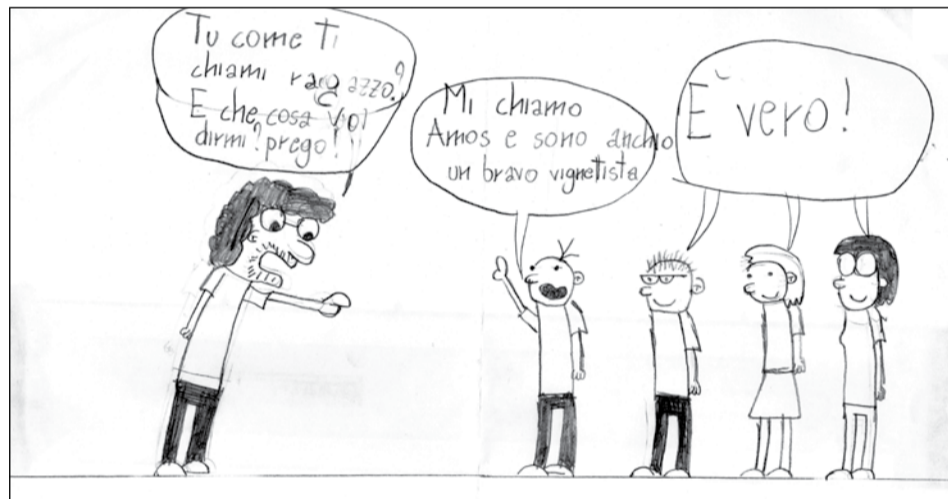 Tu come ti
chiami ragazzo?
E che cosa vuoi
dirmi? prego!
Mi chiamo
Amos e sono anchio
un bravo vignettista
È vero!